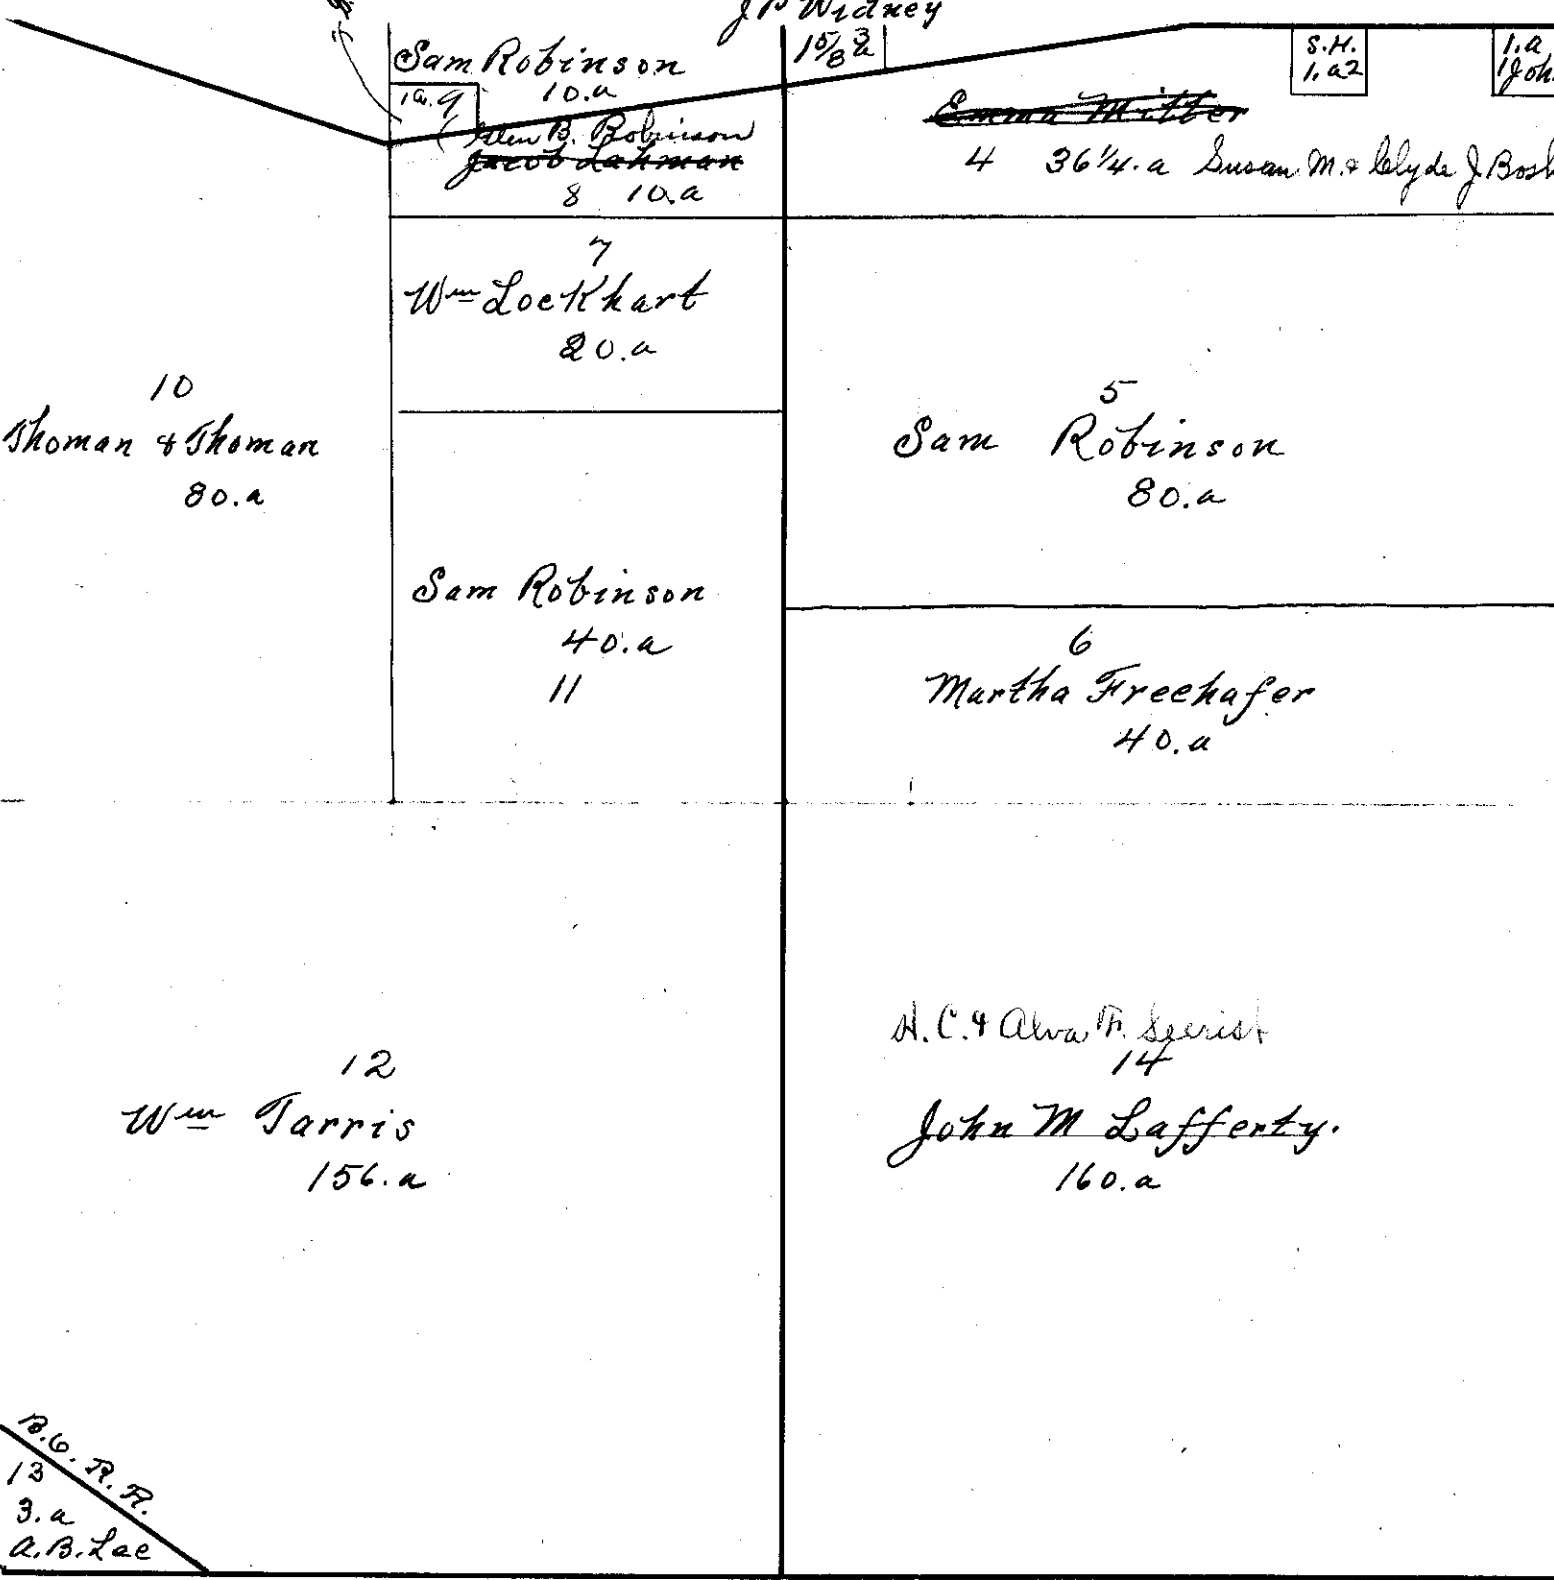 J P Widney
15/8 a
3
Sam Robinson
10.a
1a. 9
S.H.
1.a 2
1.a
1 Joh
Glen B. Robinson
Jacob Lahman
8 10.a
Emma Miller
4 36 1/4.a Susan M. & Clyde J Bosh
7
Wm Lockhart
20.a
10
Thoman & Thoman
80.a
5
Sam Robinson
80.a
Sam Robinson
40.a
11
6
Martha Freehafer
40.a
12
Wm Tarris
156.a
H.C. & Alva F. Secrist
14
John M Lafferty.
160.a
B.O. R.R.
13
3.a
A.B. Lee